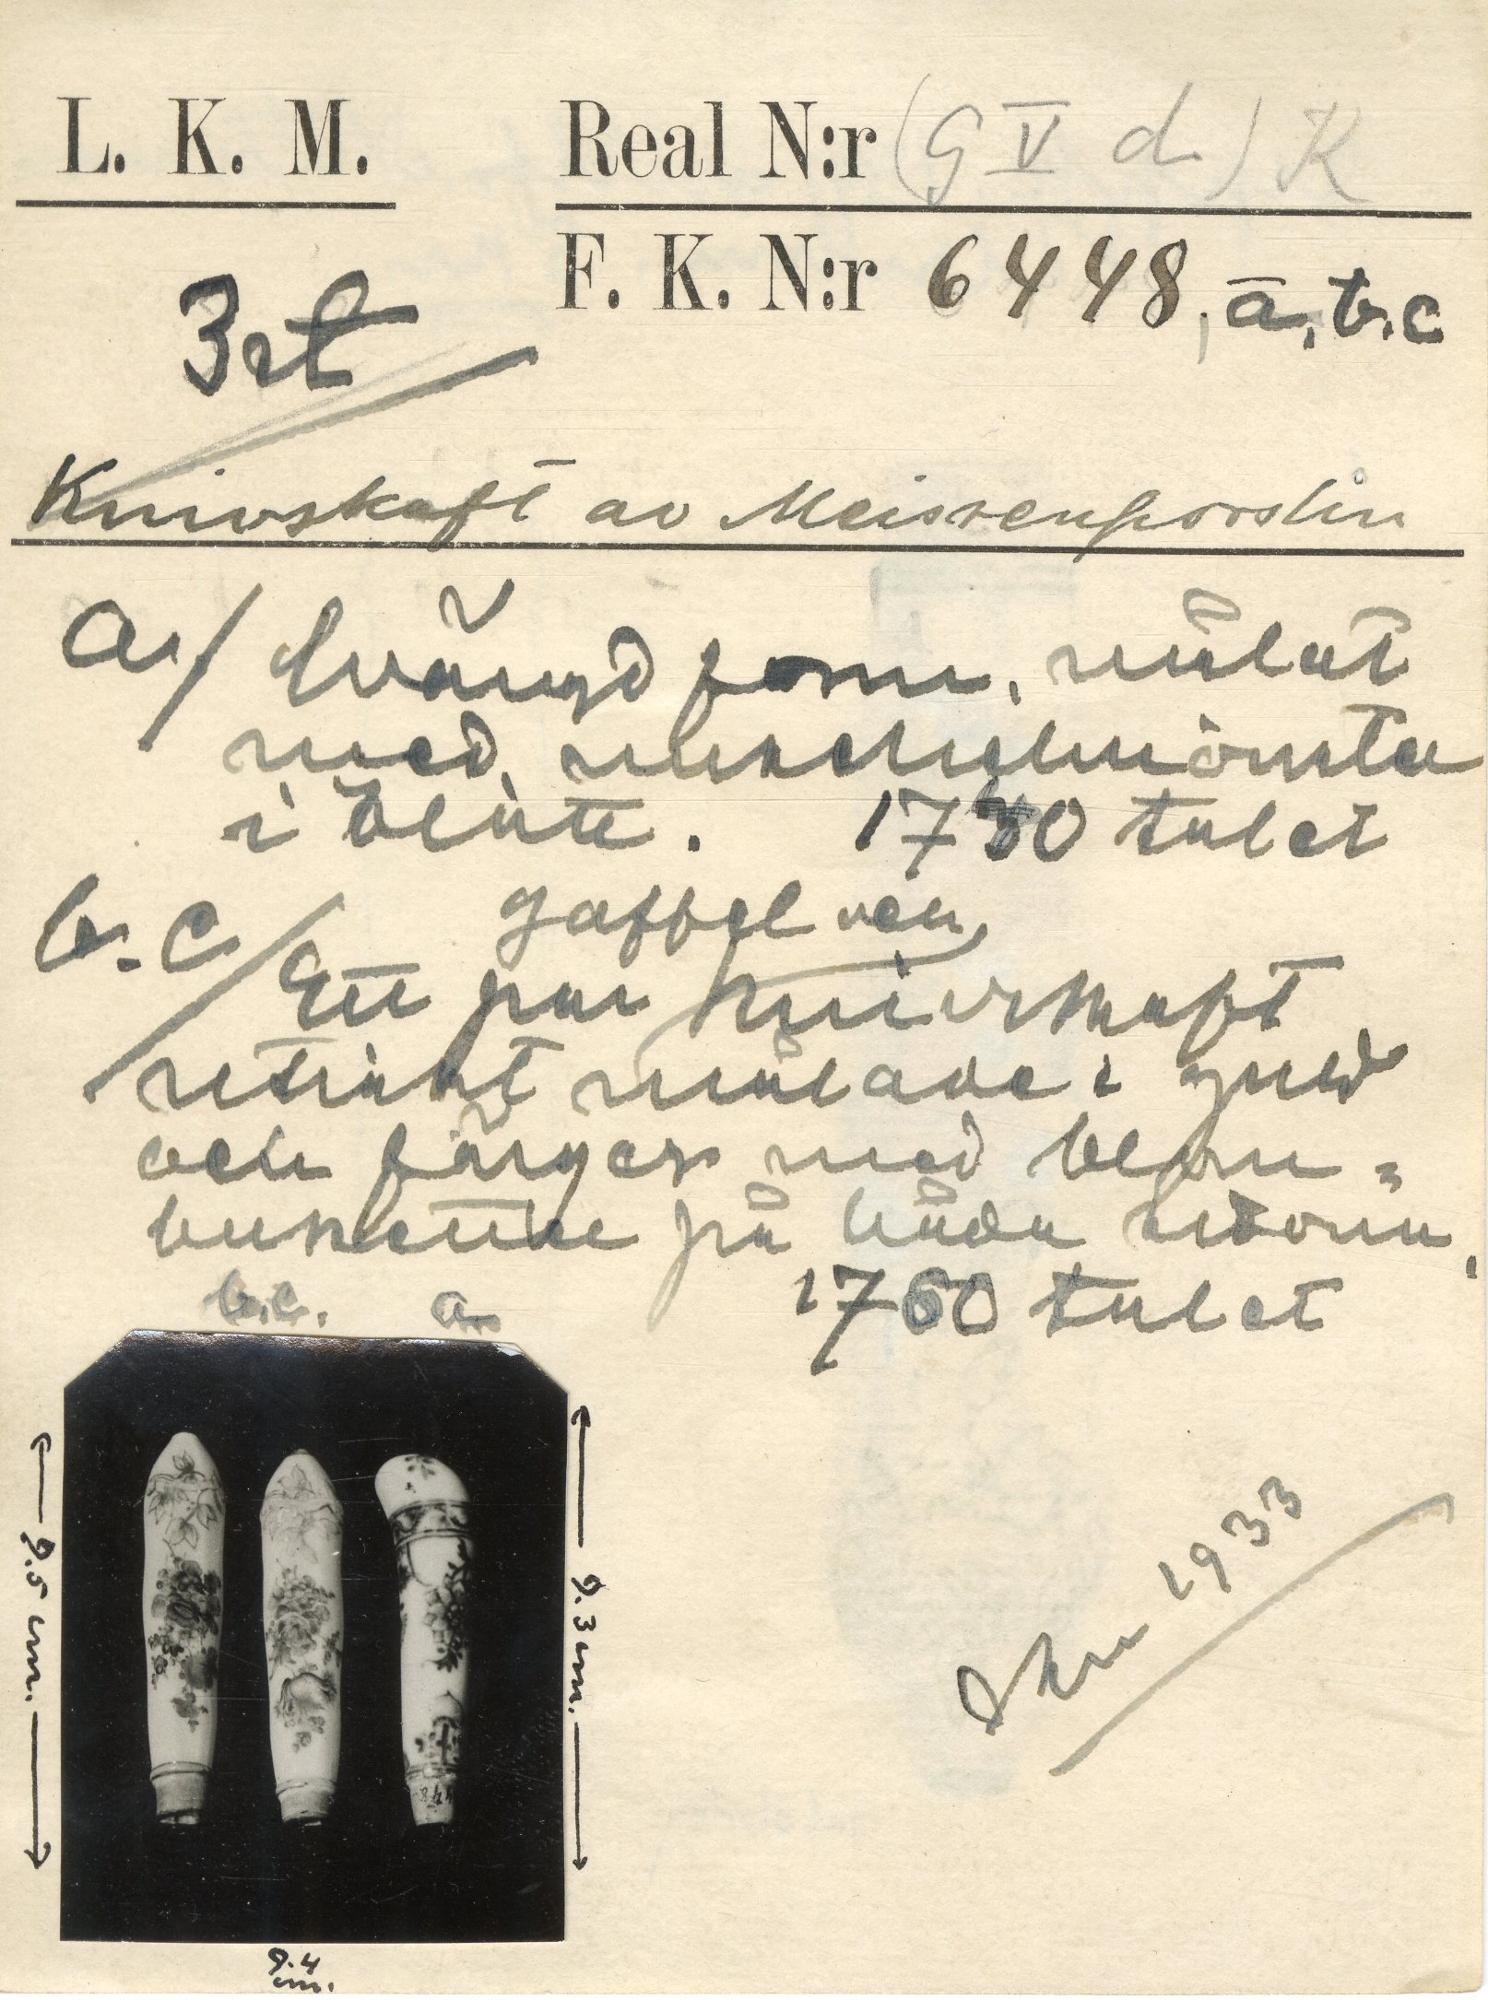 L. K. M.
Real N:r (G V d.) K
F. K. N:r 6448, a, b.c
3 st
Knivskaft av Meissenporslin
a/ Svängd form, målat
med muschelmönster
i blått. 1740 talet
b.c/ Ett par gaffel resp. knivskaft
rikt målade i guld
och färger med blom-
buketter på båda sidorna.
1760 talet
b.c. a.
9.5 cm.
9.3 cm.
9.4
cm.
1933